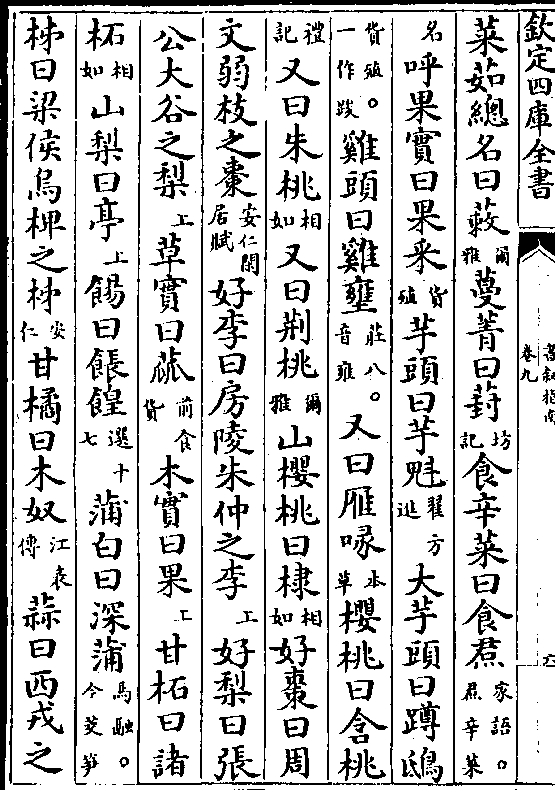 欽定四庫全書
書叙指南
卷九
菜茹總名曰蔌爾雅蔓菁曰葑坊記食辛菜曰食焄家語。焄辛菜
名呼果實曰果采貨殖芋頭曰芋魁翟方進大芋頭曰蹲鴟
貨殖。一作踆雞頭曰雞壅莊八。音雍又曰雁喙本草櫻桃曰含桃
禮記又曰朱桃相如又曰荆桃爾雅山櫻桃曰棣相如好棗曰周
文弱枝之棗安仁閒居賦好李曰房陵朱仲之李上好梨曰張
公大谷之梨上草實曰蓏前食貨木實曰果上甘柘曰諸
柘相如山梨曰亭上餳曰餦餭選十七蒲白曰深蒲馬融。今茭笋
柹曰梁侯烏椑之柹安仁甘橘曰木奴江表傳蒜曰西戎之